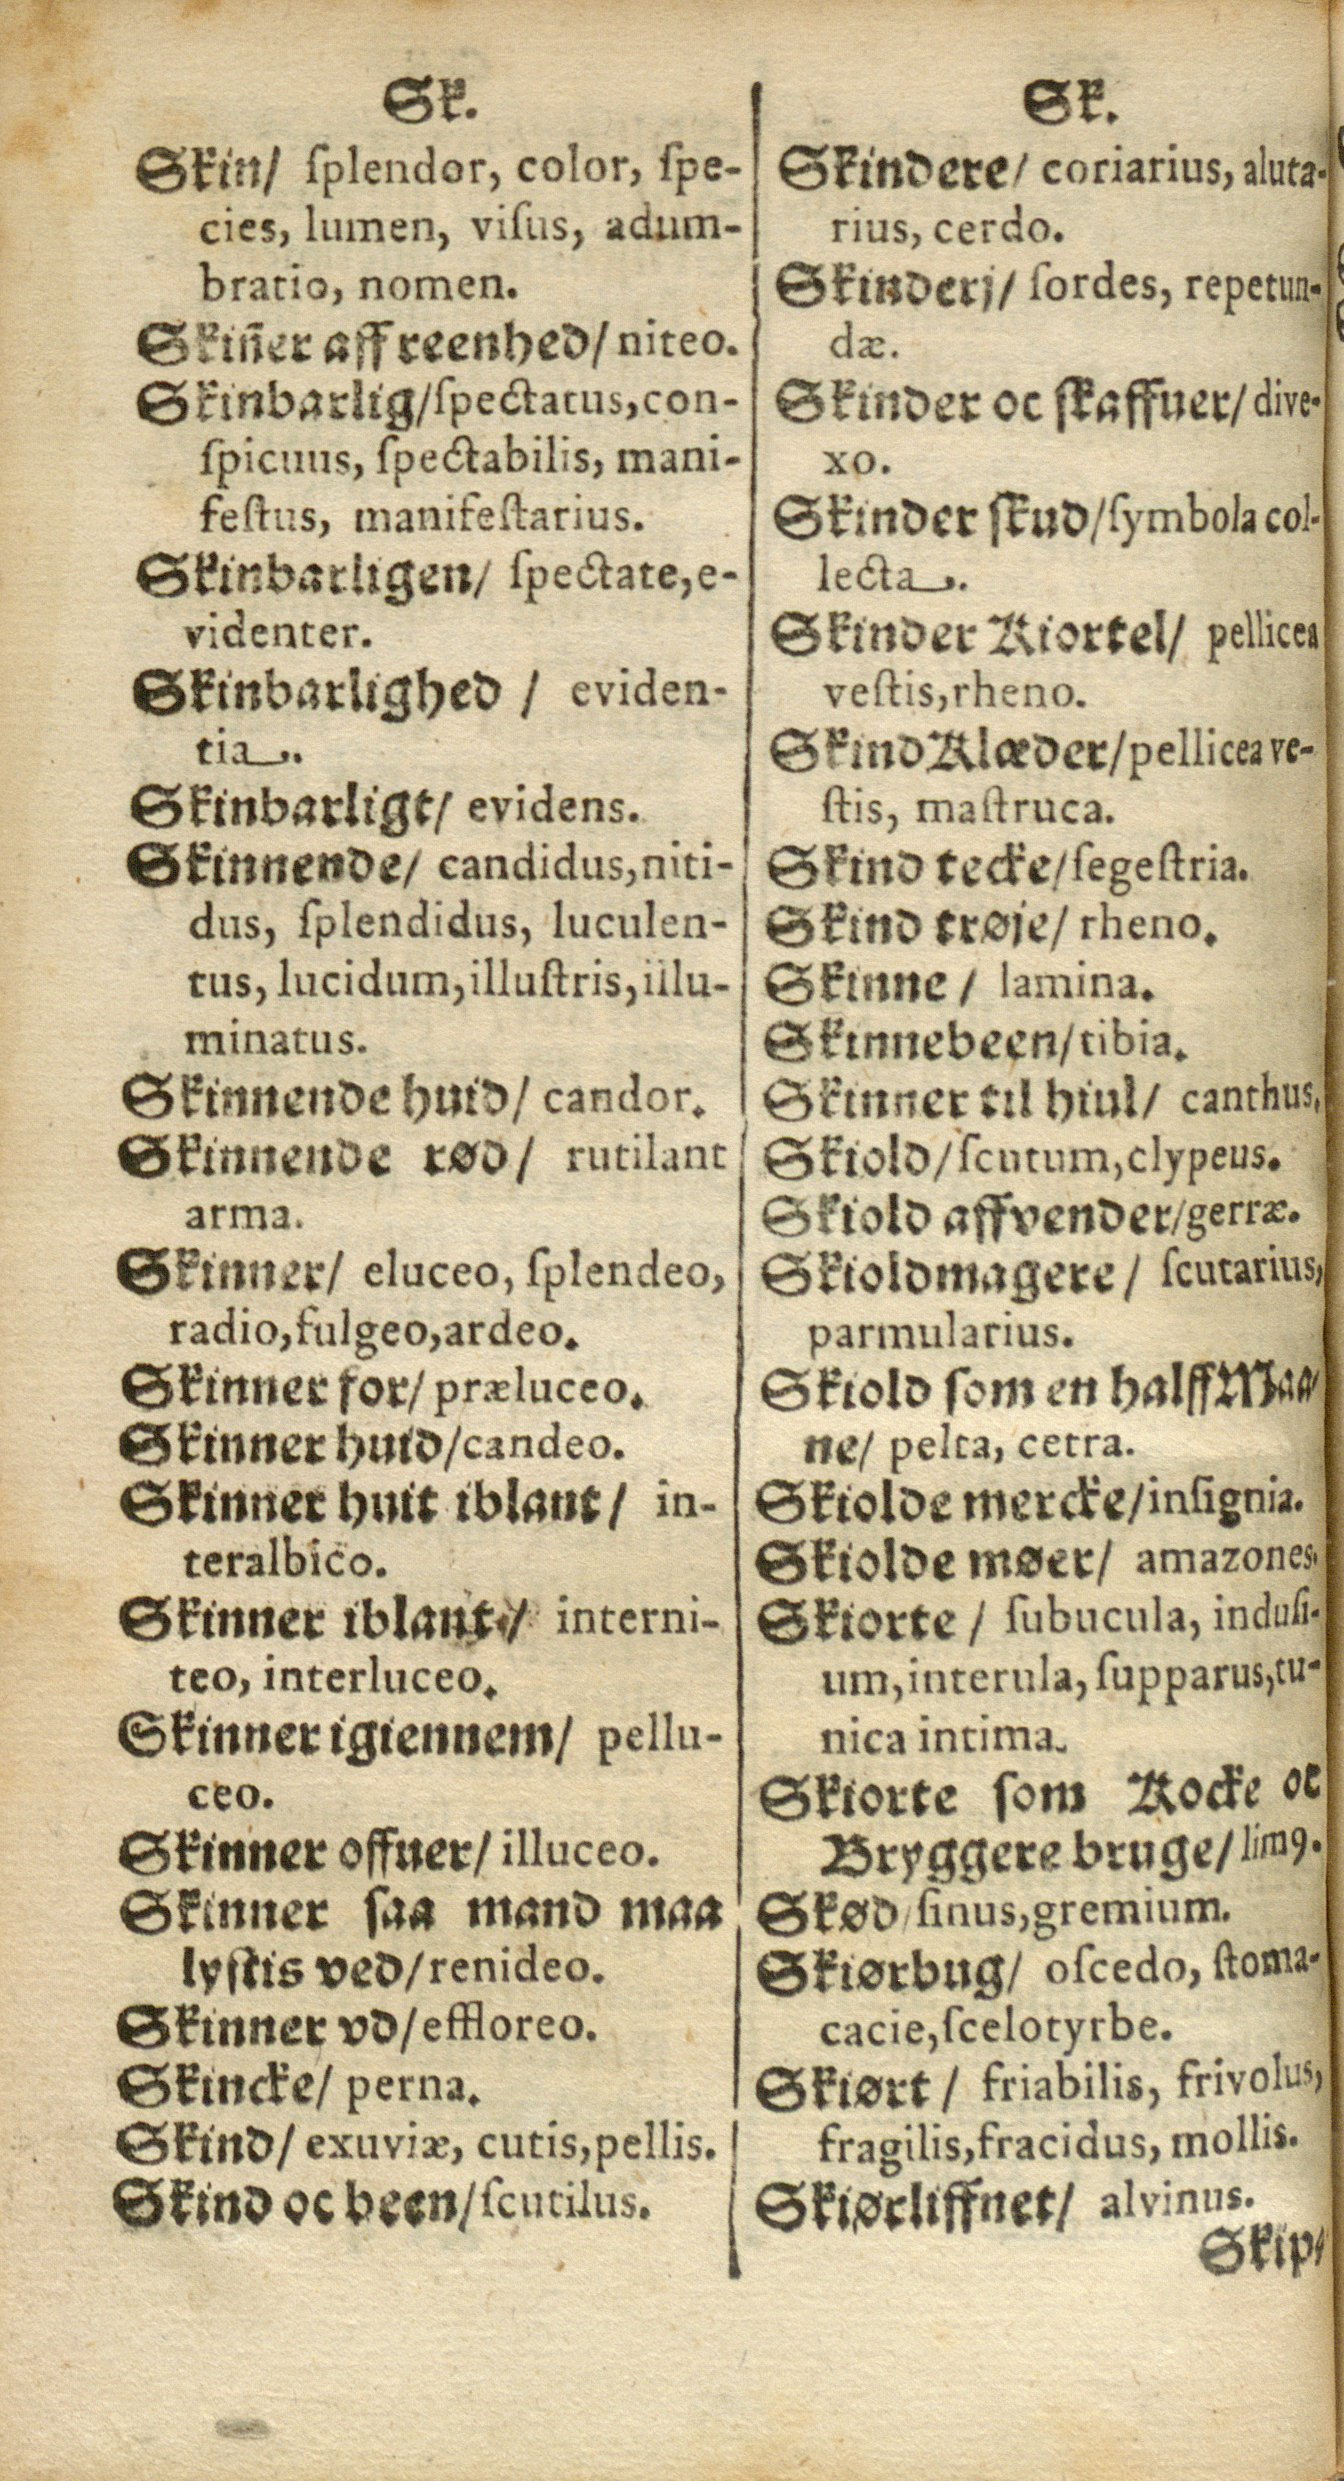 Sk.
Skin/ ſplendor, color, ſpe-
cies, lumen, viſus, adum-
bratio, nomen.
Skiñer aff reenhed/ niteo.
Skinbarlig/ſpectatus,con-
ſpicuus, ſpectabilis, mani-
feſtus, manifeſtarius.
Skinbarligen/ ſpectate,e-
videnter.
Skinbarlighed / eviden-
tia.
Skinbarligt/ evidens.
Skinnende/ candidus,niti-
dus, ſplendidus, luculen-
tus, lucidum,illuſtris,illu-
minatus.
Skinnende huid/ candor.
Skinnende rød/ rutilant
arma.
Skinner/ eluceo, ſplendeo,
radio,fulgeo,ardeo.
Skinner for/ præluceo.
Skinner huid/candeo.
Skinner huit iblant/ in-
teralbico.
Skinner iblant/ interni-
teo, interluceo.
Skinner igiennem/ pellu-
ceo.
Skinner offuer/ illuceo.
Skinner ſaa mand maa
lyſtis ved/renideo.
Skinner vd/effloreo.
Skincke/ perna.
Skind/ exuviæ, cutis,pellis.
Skind oc been/ſcutilus.
Sk.
Skindere/ coriarius, aluta-
rius, cerdo.
Skinderj/ ſordes, repetun-
dæ.
Skinder oc ſkaffuer/ dive-
xo.
Skinder ſkud/ſymbola col-
lecta.
Skinder Kiortel/ pellicea
veſtis,rheno.
Skind Klæder/pellicea ve-
ſtis, maſtruca.
Skind tecke/ſegeſtria.
Skind trøje/ rheno.
Skinne / lamina.
Skinnebeen/tibia.
Skinner til hiul/ canthus.
Skiold/ſcutum,clypeus.
Skiold affvender/gerræ.
Skioldmagere/ ſcutarius,
parmularius.
Skiold ſom en halff Maa/
ne/ pelta, cetra.
Skiolde mercke/inſignia.
Skiolde møer/ amazones.
Skiorte / ſubucula, induſi-
um,interula, ſupparus,tu-
nica intima.
Skiorte ſom Kocke oc
Bryggere bruge/ limꝰ.
Skød/ſinus,gremium.
Skiørbug/ oſcedo, ſtoma-
cacie,ſcelotyrbe.
Skiørt / friabilis, frivolus,
fragilis,fracidus, mollis.
Skiørliffnet/ alvinus.
Skip/